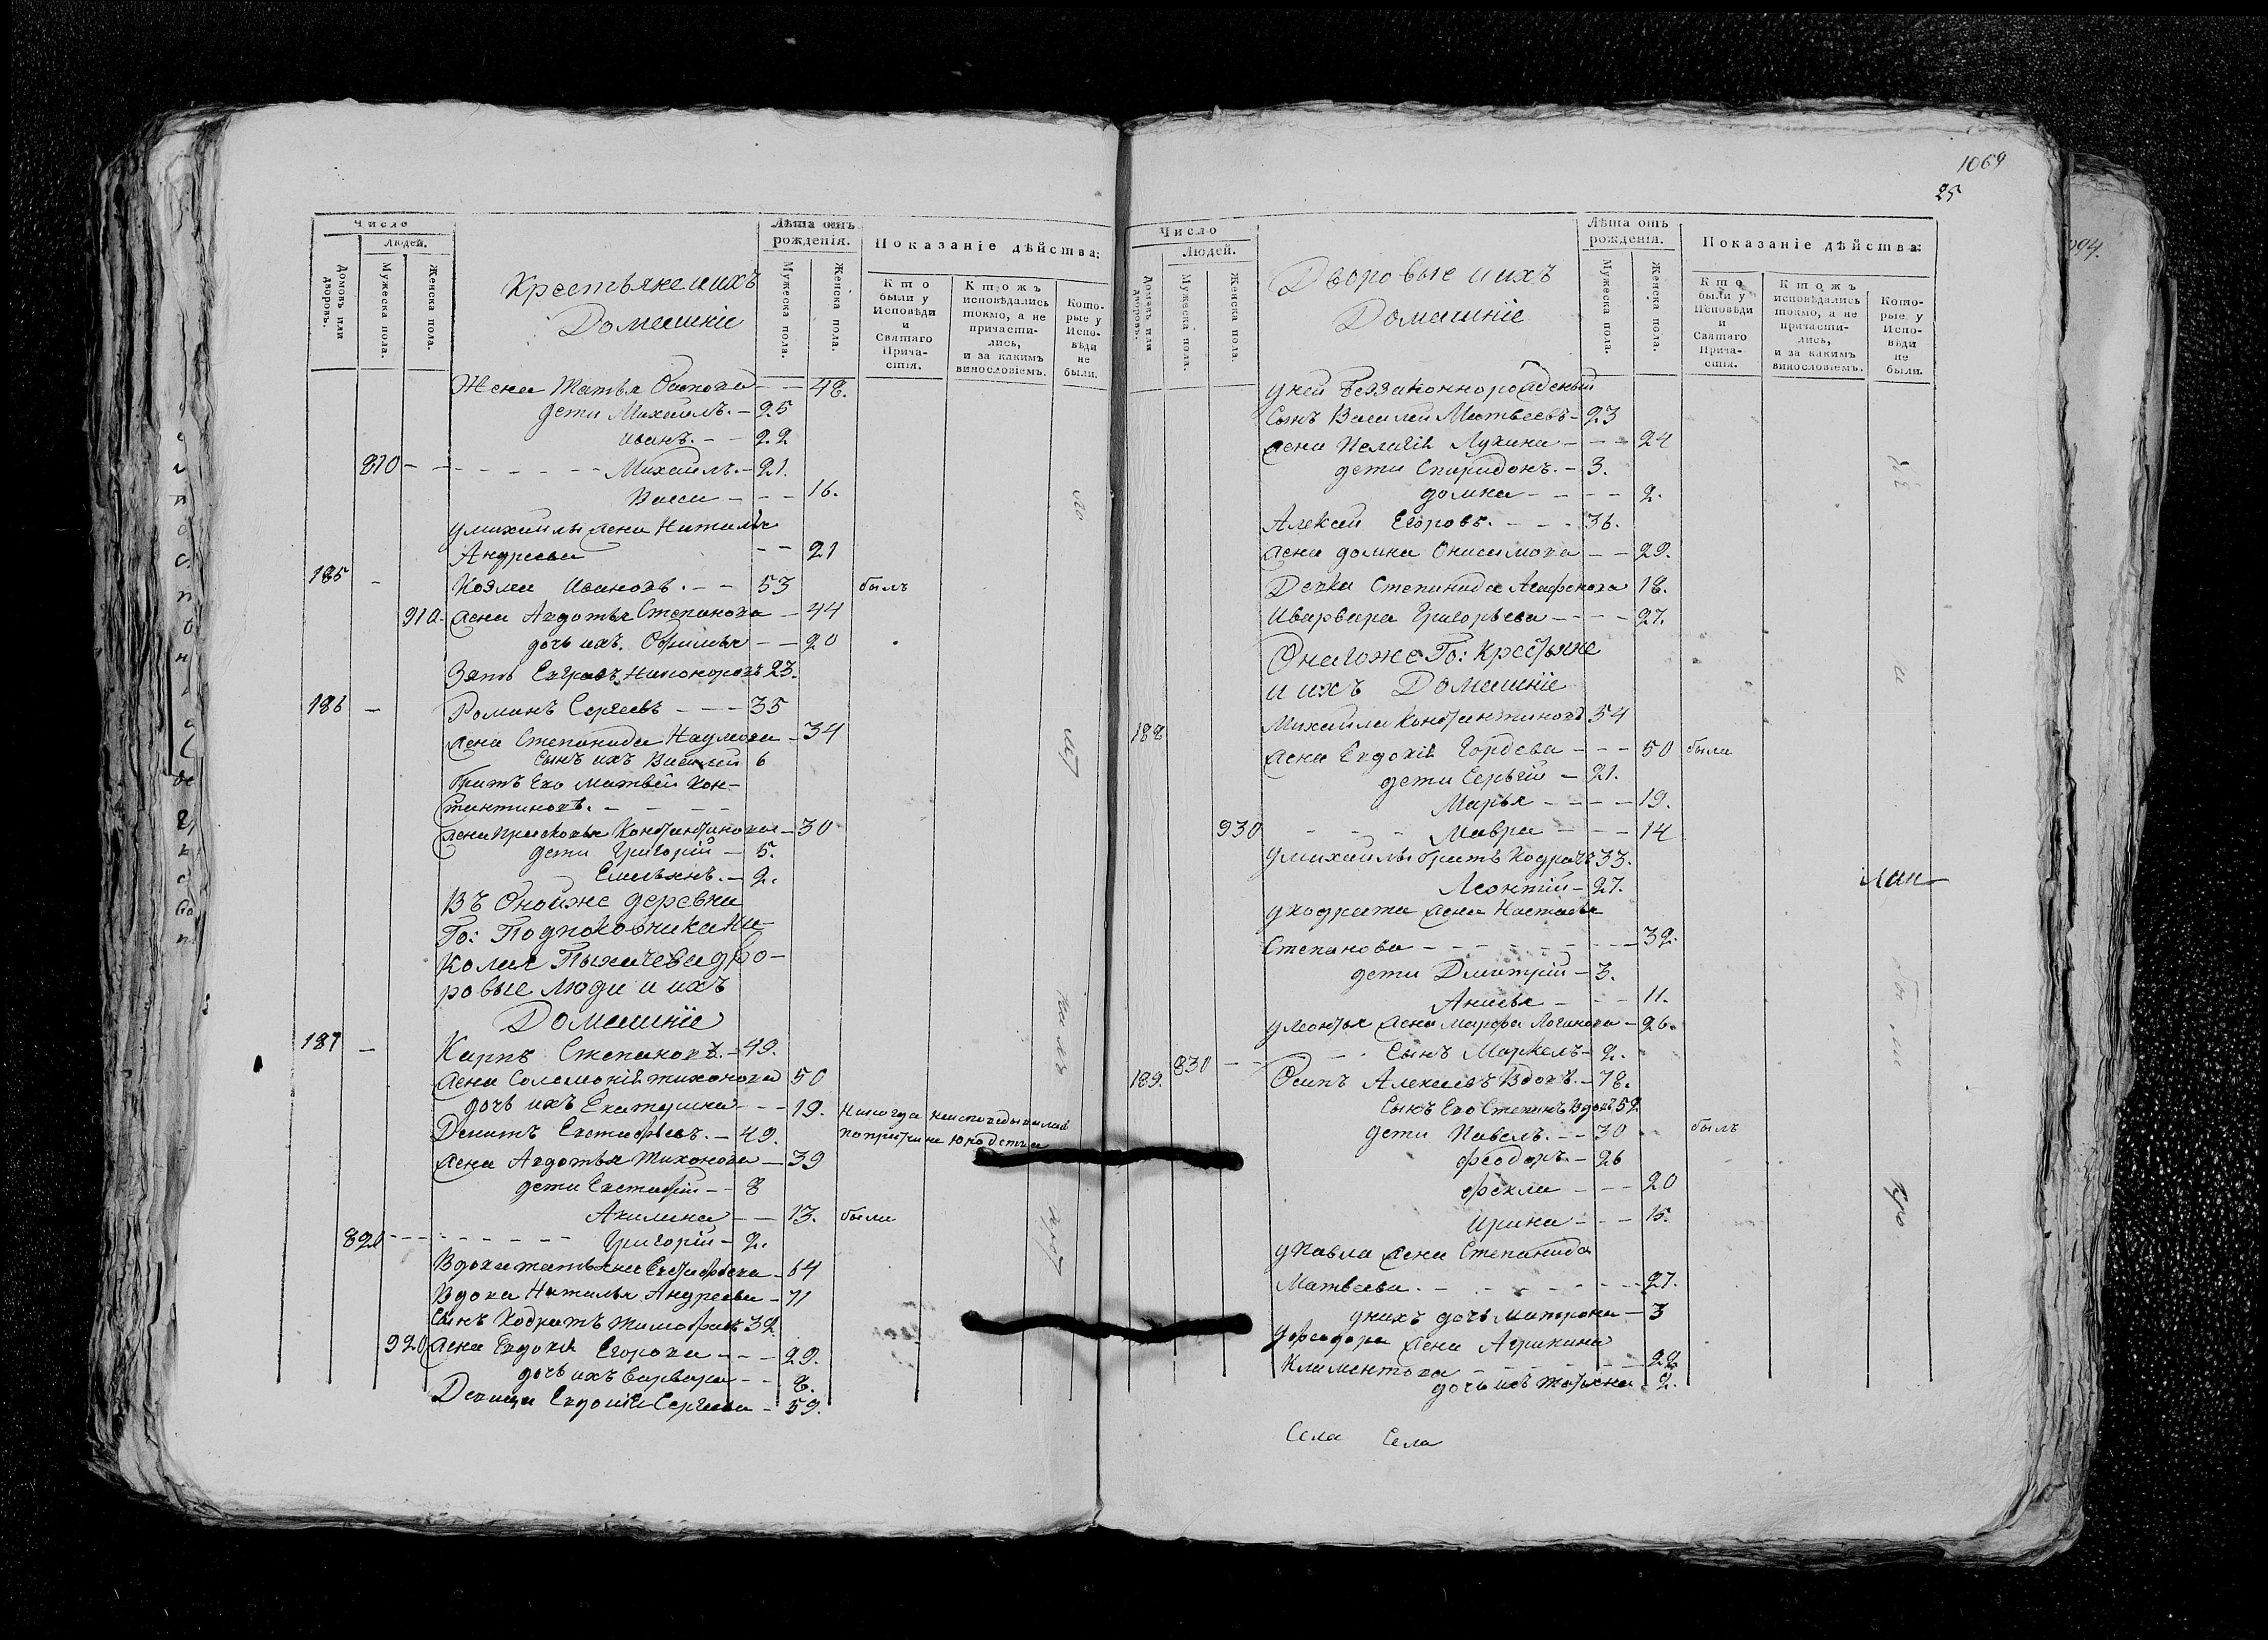 Число
Людей.
Домовъ или дворовъ.
Мужеска пола.
Женска пола.
Крестьяне и ихъ
Домашніе
Лѣта отъ рожденія.
Мужеска пола.
Женска пола.
Показаніе дѣйства:
Кто были у Исповѣди и Святаго Причастія.
Ктожъ исповѣдались токмо, а не причастились, и за какимъ винословіемъ.
Которые у Исповѣди не были.
Жена Татья Осипова - - 48.
дети Михаилъ. - 25
иванъ. - - 22
810 - - - - - - - Михаилъ. - 21.
Васса - - - 16.
умихаилы жена Наталья
Андреева - - 21
185 - Козма Ивановъ. - - 53 былъ
910. жена Авдотья Степанова - 44
дочь ихъ. Офимья - - 20
Зять Евграфъ Никоноровъ 23.
186 - Романъ Сергеевъ - - - 35
жена Степанида Наумова - 34
Сынъ ихъ Василей 6
братъ Ево Матвей Кон-
стантиновъ. - - - -
жена Прасковья Константинова - 30
дети Григорій - 5.
Емельянъ. - 2.
Въ Онойже деревни
Го: Подполковника Ни-
колая Пыхачева дво-
ровые люди и ихъ
Домашніе
187 - Карпъ Степановъ. - 49.
жена Соломонія тихонова 50
дочь ихъ Екатерина - - - 19. никогда неисповедывалась
Демитъ Евстафьевъ. - 49. попричине юродства
жена Авдотья Тихонова - 39
дети Евстафій - - 8
Акилина - - 13. были
820 - - - - - - - Григорій - 2.
Вдова татьяна Евстафьева - 64
Вдова Наталья Андреева - 71
Сынъ Кодратъ Тимофеевъ 32
920 жена Евдокія Егорова - - - 29.
дочь ихъ Варвара - - 8.
Девица Евдокія Сергеева - 59.
1069
25
Число
Людей.
Домовъ или дворовъ.
Мужеска пола.
Женска пола.
Дворовые и ихъ
Домашніе
Лѣта отъ рожденія.
Мужеска пола.
Женска пола.
Показаніе дѣйства:
Кто были у Исповѣди и Святаго Причастія.
Ктожъ исповѣдались токмо, а не причастились, и за какимъ винословіемъ.
Которые у Исповѣди не были.
уней беззаконнорожденый
Сынъ Василей Матвеевъ - 23
жена Пелагія Лукина - - - 24
дети Спиридонъ. - 3.
домна - - - - 2.
Алексей Егоровъ. - - - 36.
жена домна Онисимова - - 29.
Девки Степанида Агафонова 18.
Иварвара Григорьева - - - - 27.
Онагоже Го: Крестьяне
и ихъ Домашніе
188 Михаила Константиновъ 54
жена Евдокія Гордеева - - - 50 были
дети Сергій - 21.
Марья - - - - 19.
930 - - - Мавра - - - 14
умихаилы братъ Кодратъ 33.
Леонтій - 27.
укодрата жена Настасья
Степанова - - - - - - - - 32.
дети Дмитрій - 3.
Анисья - - - 11.
улеонтья жена Марфа Логинова - 26.
830 - - - - Сынъ Маркелъ - 2.
189. Осипъ Алексеевъ Вдовъ. - 78.
Сынъ Ево Степанъ Вдовъ 52
дети Павелъ. - - 30 былъ
феодоръ - 26
фекла - - - 20
Ирина - - - 15.
упавла жена Степанида
Матвеева. - - - - - - - 27.
унихъ дочь матрона - 3
уфеодора жена Агрипина
Климентова - - - - - - - 22
дочь ихъ татьяна - 2.
Села Села